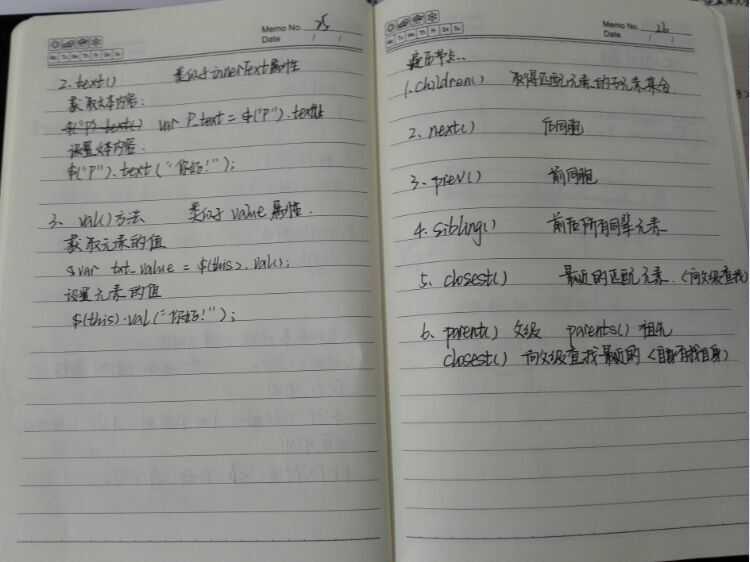 Memo No. 25
Date / /
2. text() 类似于innerText属性
获取文本内容:
$("P").text() var P_text = $("P").text();
设置文本内容.
$("P").text("你好!");
3. val()方法 类似于value属性.
获取元素的值
var txt_value = $(this).val();
设置元素的值
$(this).val("你好!");
Memo No. 26
Date / /
遍历节点..
1. children() 取得匹配元素的子元素集合
2. next() 后同胞
3. prev() 前同胞
4. sibling() 前后所有同辈元素.
5. closest() 最近的匹配元素. (向父级查找)
6. parent() 父级 parents() 祖先
closest() 向父级查找最近的 (自身有找自身)